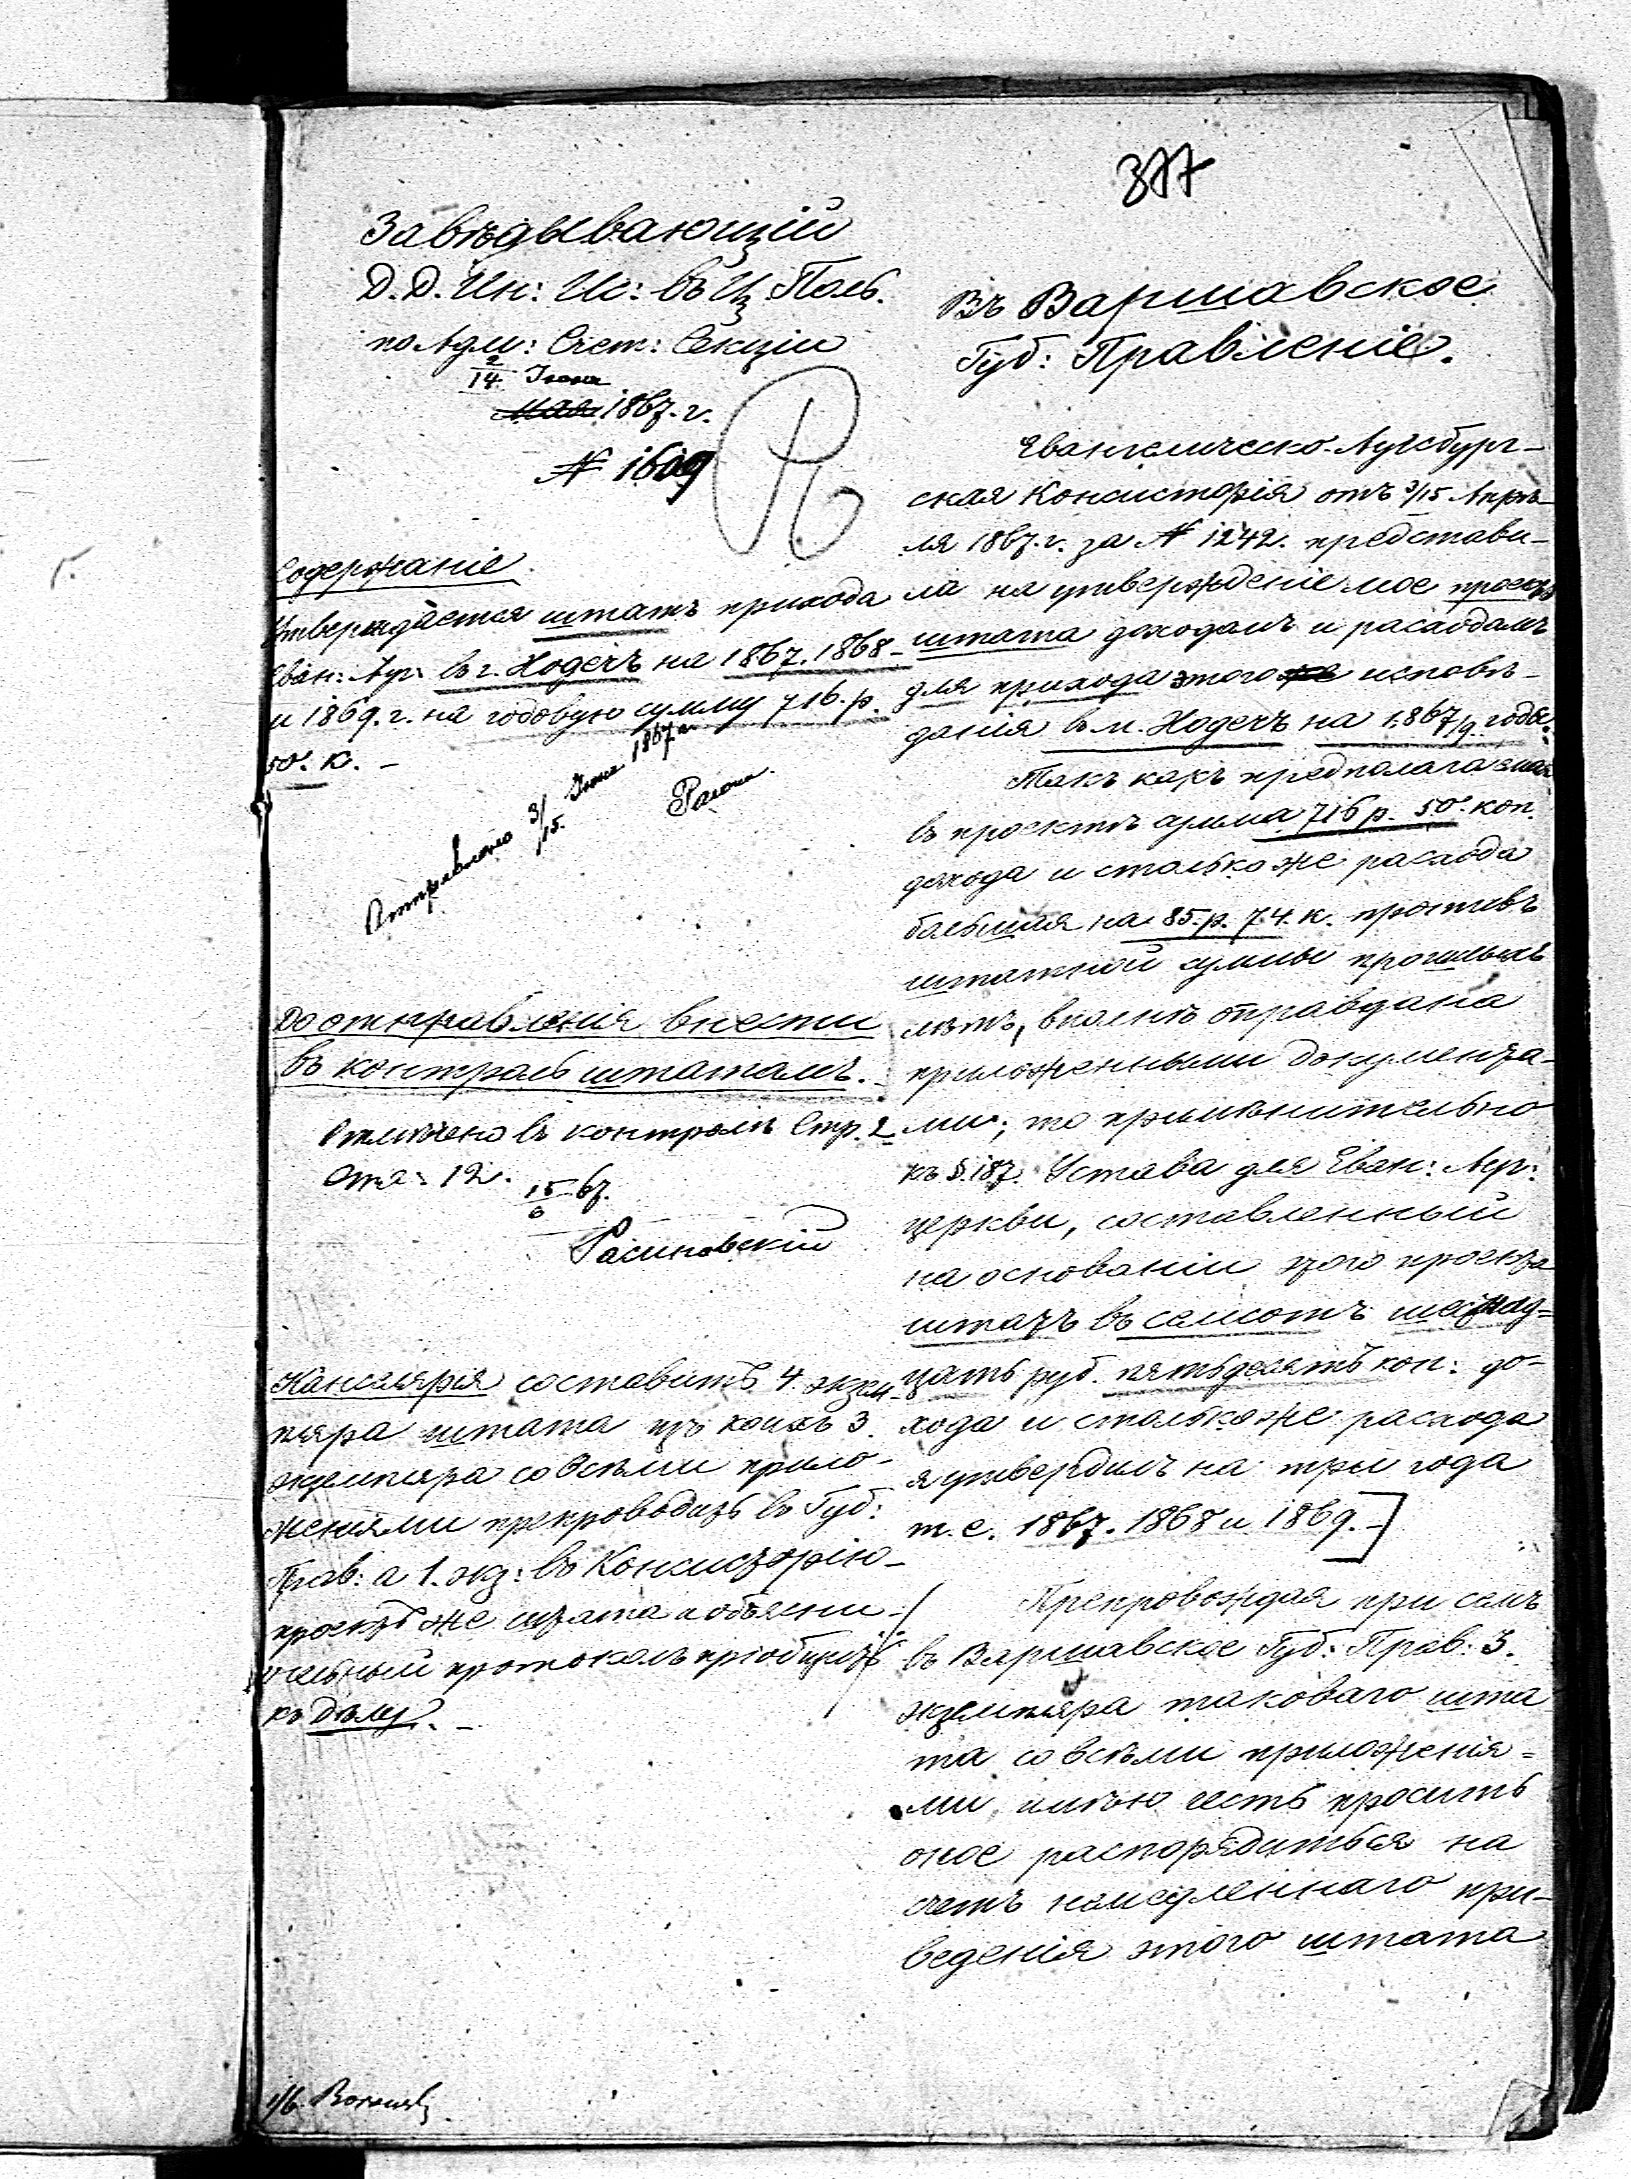 377
Завѣдывающій
Д. Д. Ин: Ис: въ Ц. Поль.
по Адм: Счет: Секціи
2/14 Іюня
мая 1867. г.
№ 1609
Содержаніе.
Утверждается штатъ прихода
Еван: Ауг: въ г. Ходечъ на 1867. 1868
и 1869. г. на годовую сумму 716. р.
50. к. –
Отправлено 3/15. Іюня 1867 г.
До отправленія внести
въ контроль штатамъ.
Отмѣчено въ контролѣ Стр. 2
Отд: 12. 15/6 67.
Канцелярія составитъ 4. экзем-
пляра штата изъ коихъ 3.
экземпляра со всѣми прило-
женіями препроводить въ Губ:
Прав: а 1. экз: въ Консисторію –
проектъ же штата и объясни-
тельный протоколъ пріобщить
къ дѣлу. –
Въ Варшавское
Губ: Правленіе.
Евангелическо-Аугсбург-
ская Консисторія отъ 3/15 Апрѣ-
ля 1867. г. за № 1242. представи-
ла на утвержденіе мое проектъ
штата доходамъ и расходамъ
для прихода этого же исповѣ-
данія въ м. Ходечъ на 1867/9 годы.
Такъ какъ предполагаемая
въ проектѣ сумма 716 р. 50. коп.
дохода и столько же расхода
большая на 85. р. 74. к. противъ
штатной суммы прошлыхъ
лѣтъ, вполнѣ оправдана
приложенными документа-
ми; то примѣнительно
къ §. 187. Устава для Еван: Ауг:
церкви, составленный
на основаніи этого проекта
штатъ въ семьсотъ шестнад-
цать руб. пятьдесятъ коп: до-
хода и столько же расхода
я утвердилъ на три года
т. е. 1867. 1868 и 1869. –
Препровождая при семъ
въ Варшавское Губ: Прав: 3.
экземпляра таковаго шта
та со всѣми приложенія-
ми имѣю честь просить
оное распорядиться на
счетъ немедленнаго при-
веденія этого штата